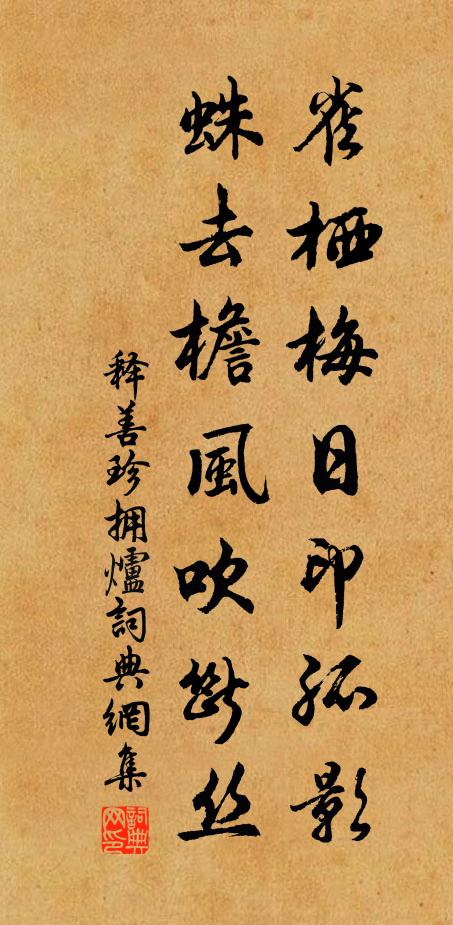 雀栖梅日印孤影
蛛去檐風吹斷丝
释善珍拥爐詞典網集
詞典網印